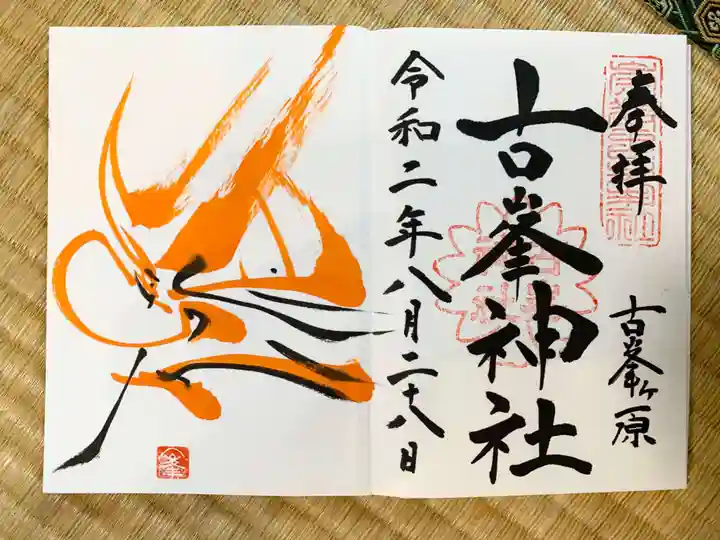 奉拝
古峯ヶ原
古峯神社
令和二年八月二十八日